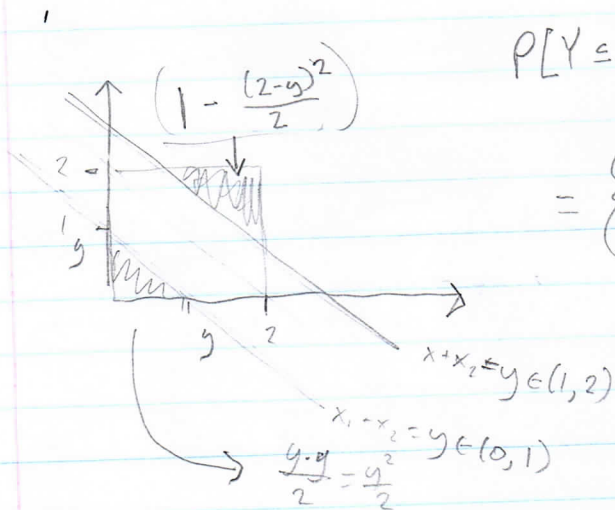 P[Y ≤
(1 - (2-y)^2/2)
=
2
1
y
y
2
x+x_2 = y ∈ (1, 2)
x_1 - x_2 = y ∈ (0, 1)
y·y/2 = y^2/2